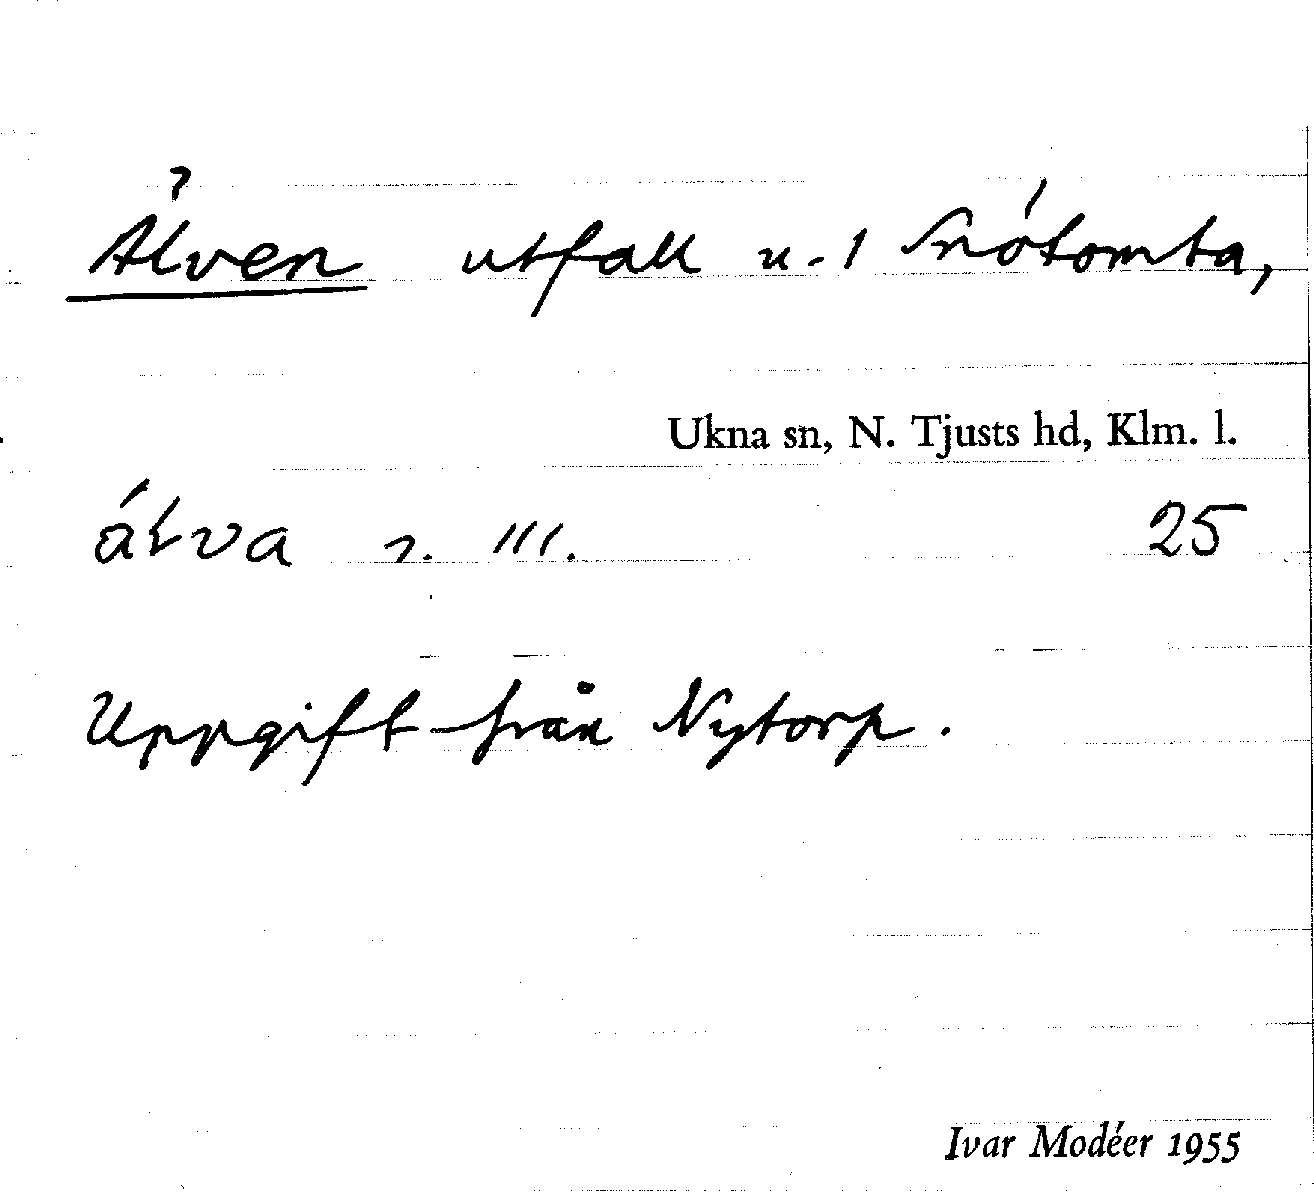 Älven utfall u. 1 Snótomta,
Ukna sn, N. Tjusts hd, Klm. l.
25
Uppgift från Nytorp.
Ivar Modéer 1955